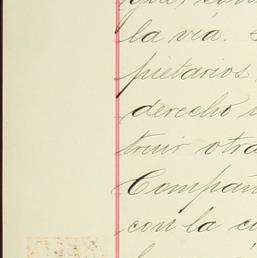 la vía.
pietarios
derecho
truir otra
Compañ
con la co